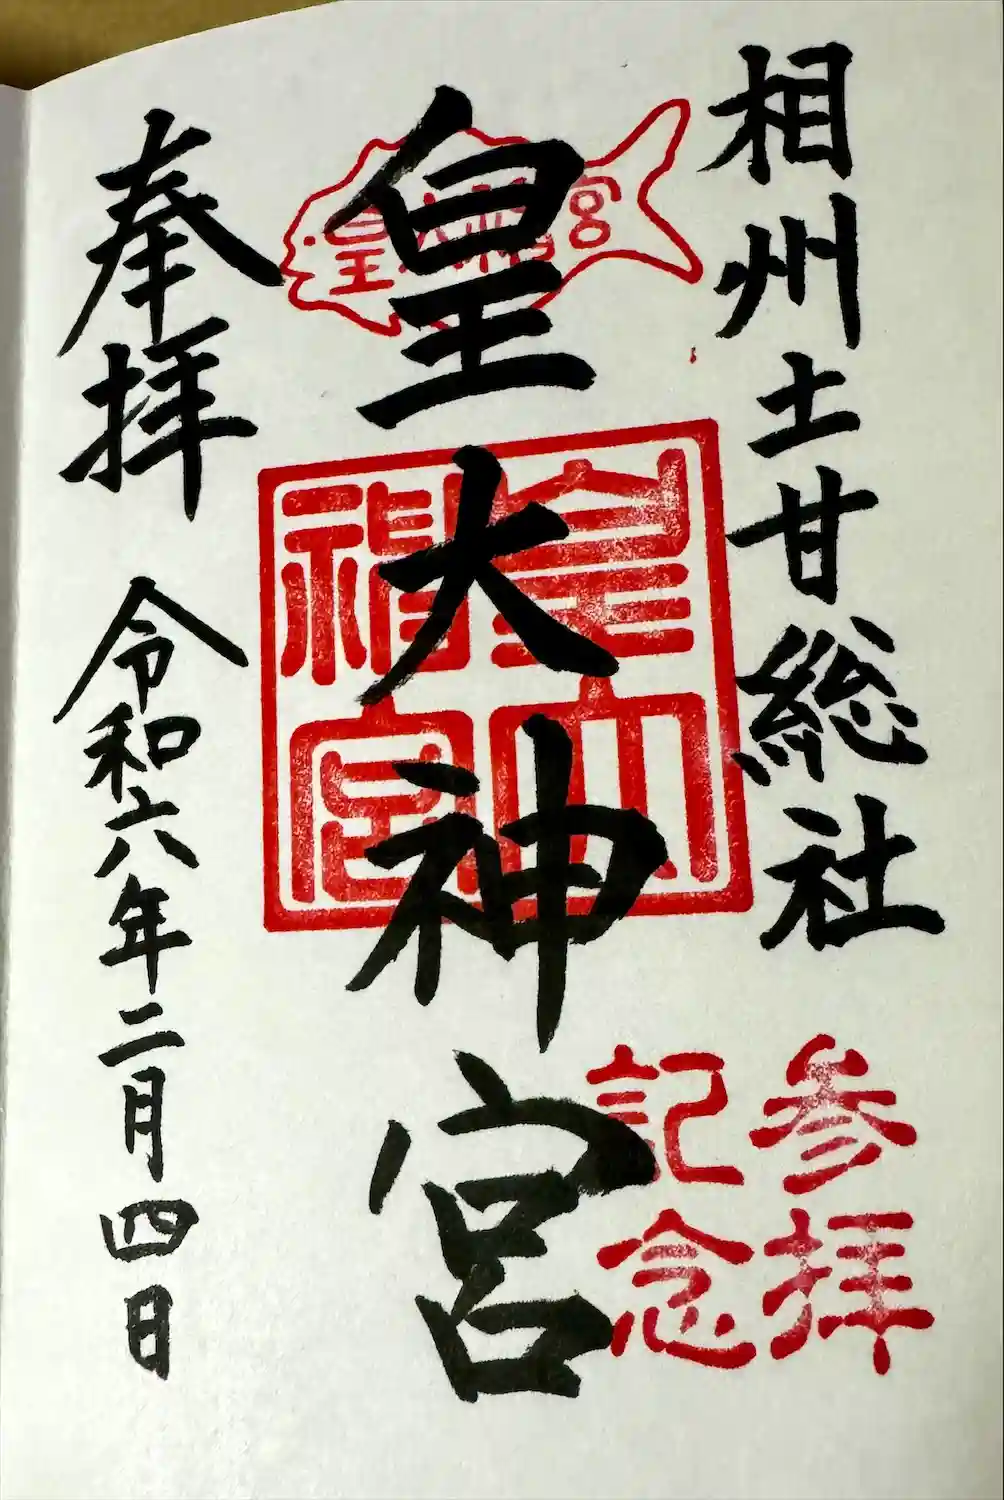 相州土甘総社
参拝
記念
皇大神宮
皇大神宮
皇大神宮
奉拝
令和六年二月四日